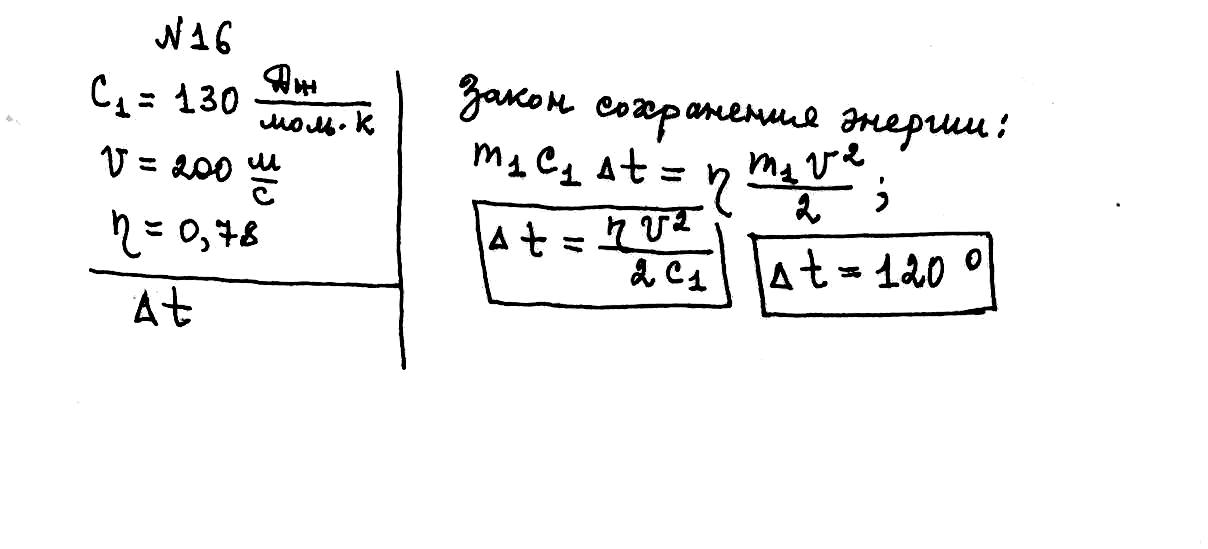 N16
C₁ = 130 Дж/моль·К
v = 200 м/с
η = 0,78
Δt
Закон сохранения энергии:
m₁ C₁ Δt = η m₁ v²/2 ;
Δt = η v²/2 C₁
Δt = 120°